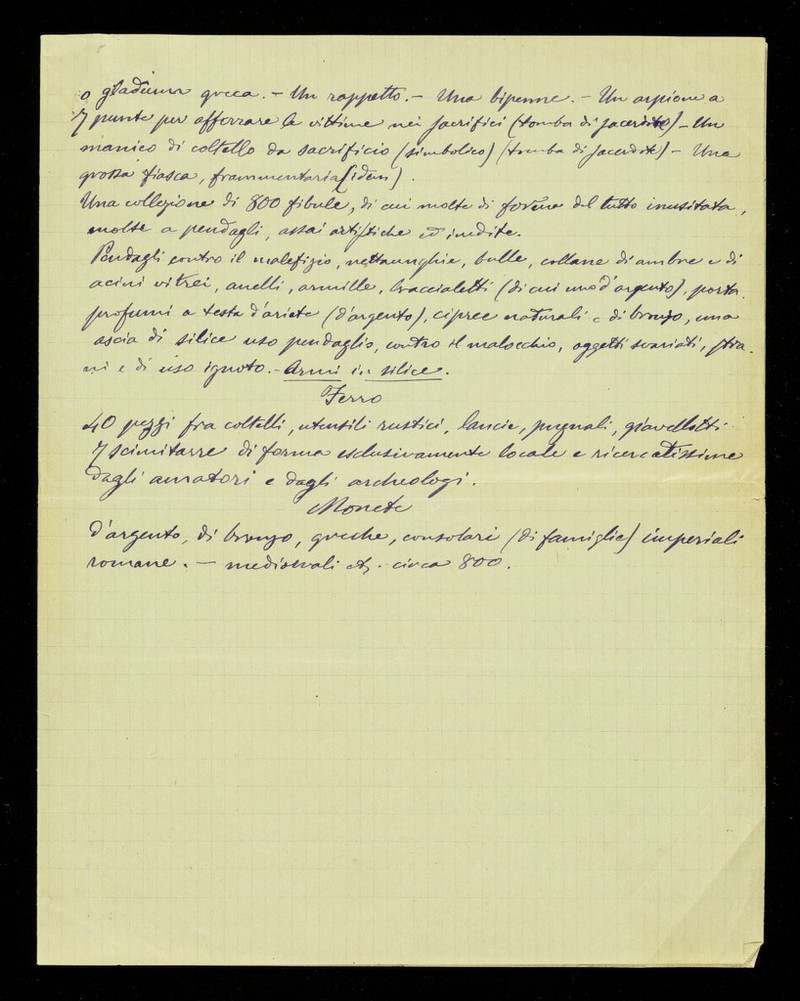 o gladium greca. - Un rappetto. - Una bipenne. - Un arpione a
7 punte per afferrare le vittime nei sacrifici (tomba di sacerdote) - Un
manico di coltello da sacrificio (simbolico) (tomba di sacerdote) - Una
grossa fiasca, frammentaria (idem).
Una collezione di 800 fibule, di cui molte di forme del tutto inusitata,
molte a pendagli, assai artistiche ed inedite.
Pendagli contro il malefizio, nettaunghie, bulle, collane di ambre e di
acini vitrei, anelli, armille, braccialetti (di cui uno d'argento), porta
profumi a testa d'ariete (d'argento), cipree naturali e di bronzo, una
ascia di silice uso pendaglio, contro il malocchio, oggetti svariati, stra-
ni e di uso ignoto. - Armi in silice.
Ferro
40 pezzi fra coltelli, utensili rustici, lancie, pugnali, giavellotti
7 scimitarre di forma esclusivamente locale e ricercatissime
dagli amatori e dagli archeologi.
Monete
d'argento, di bronzo, greche, consolari (di famiglie) imperiali
romane. - medioevali circa 800.